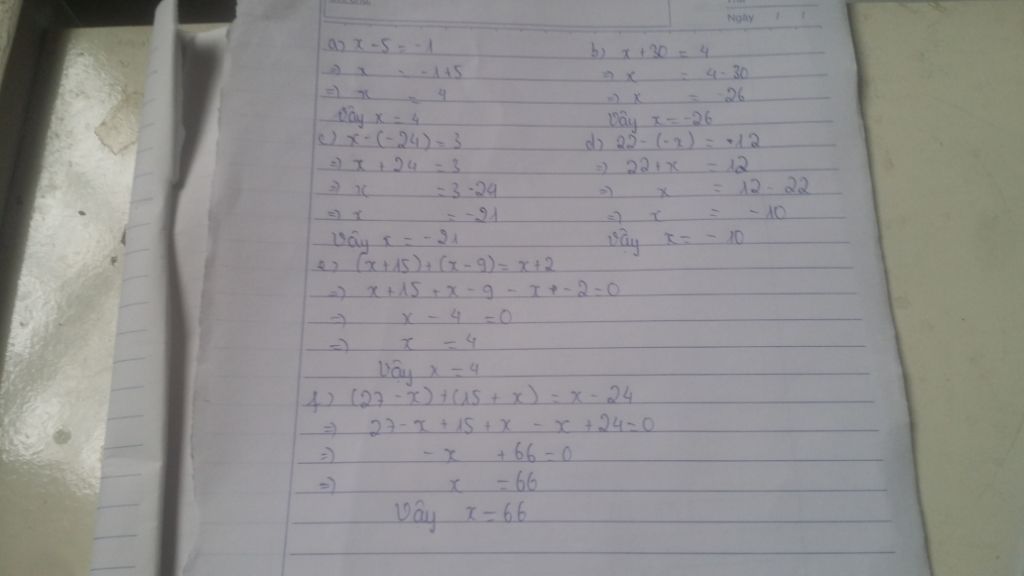 Ngày / /
a) x - 5 = -1
=> x = -1+5
=> x = 4
Vậy x = 4
b) x + 30 = 4
=> x = 4 - 30
=> x = -26
Vậy x = -26
c) x - (-24) = 3
=> x + 24 = 3
=> x = 3 - 24
=> x = -21
Vậy x = -21
d) 22 - (-x) = 12
=> 22 + x = 12
=> x = 12 - 22
=> x = -10
Vậy x = -10
e) (x+15) + (x-9) = x+2
=> x + 15 + x - 9 - x - 2 = 0
=> x - 4 = 0
=> x = 4
Vậy x = 4
f) (27 - x) + (15 + x) = x - 24
=> 27 - x + 15 + x - x + 24 = 0
=> -x + 66 = 0
=> x = 66
Vậy x = 66